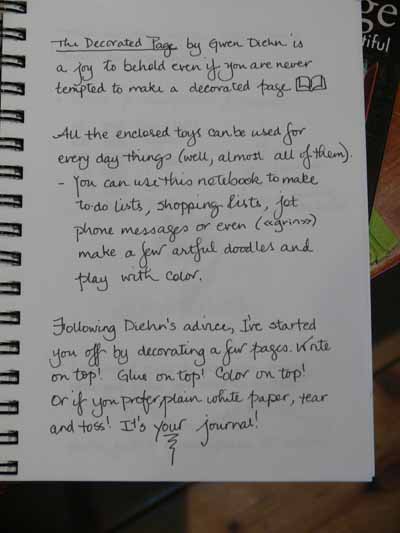 The Decorated Page by Gwen Diehn is
a joy to behold even if you are never
tempted to make a decorated page
All the enclosed toys can be used for
every day things (well, almost all of them).
- You can use this notebook to make
to-do lists, shopping lists, jot
phone messages or even («grin»)
make a few artful doodles and
play with color.
Following Diehn's advice, I've started
you off by decorating a few pages. Write
on top! Glue on top! Color on top!
Or if you prefer plain white paper, tear
and toss! It's your journal!
ge
tiful